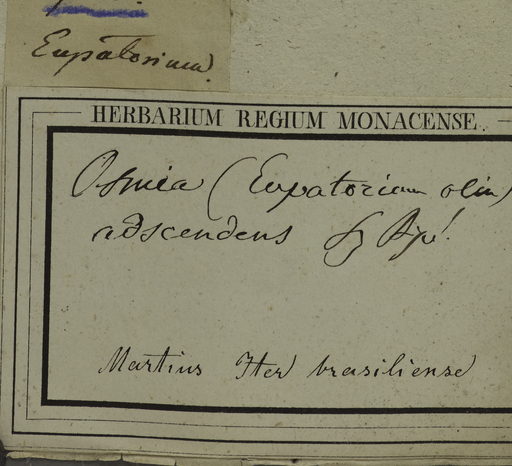 Eupatorium.
HERBARIUM REGIUM MONACENSE.
Osmia (Eupatorium olim)
adscendens Sz Bip!
Martius Iter brasiliense